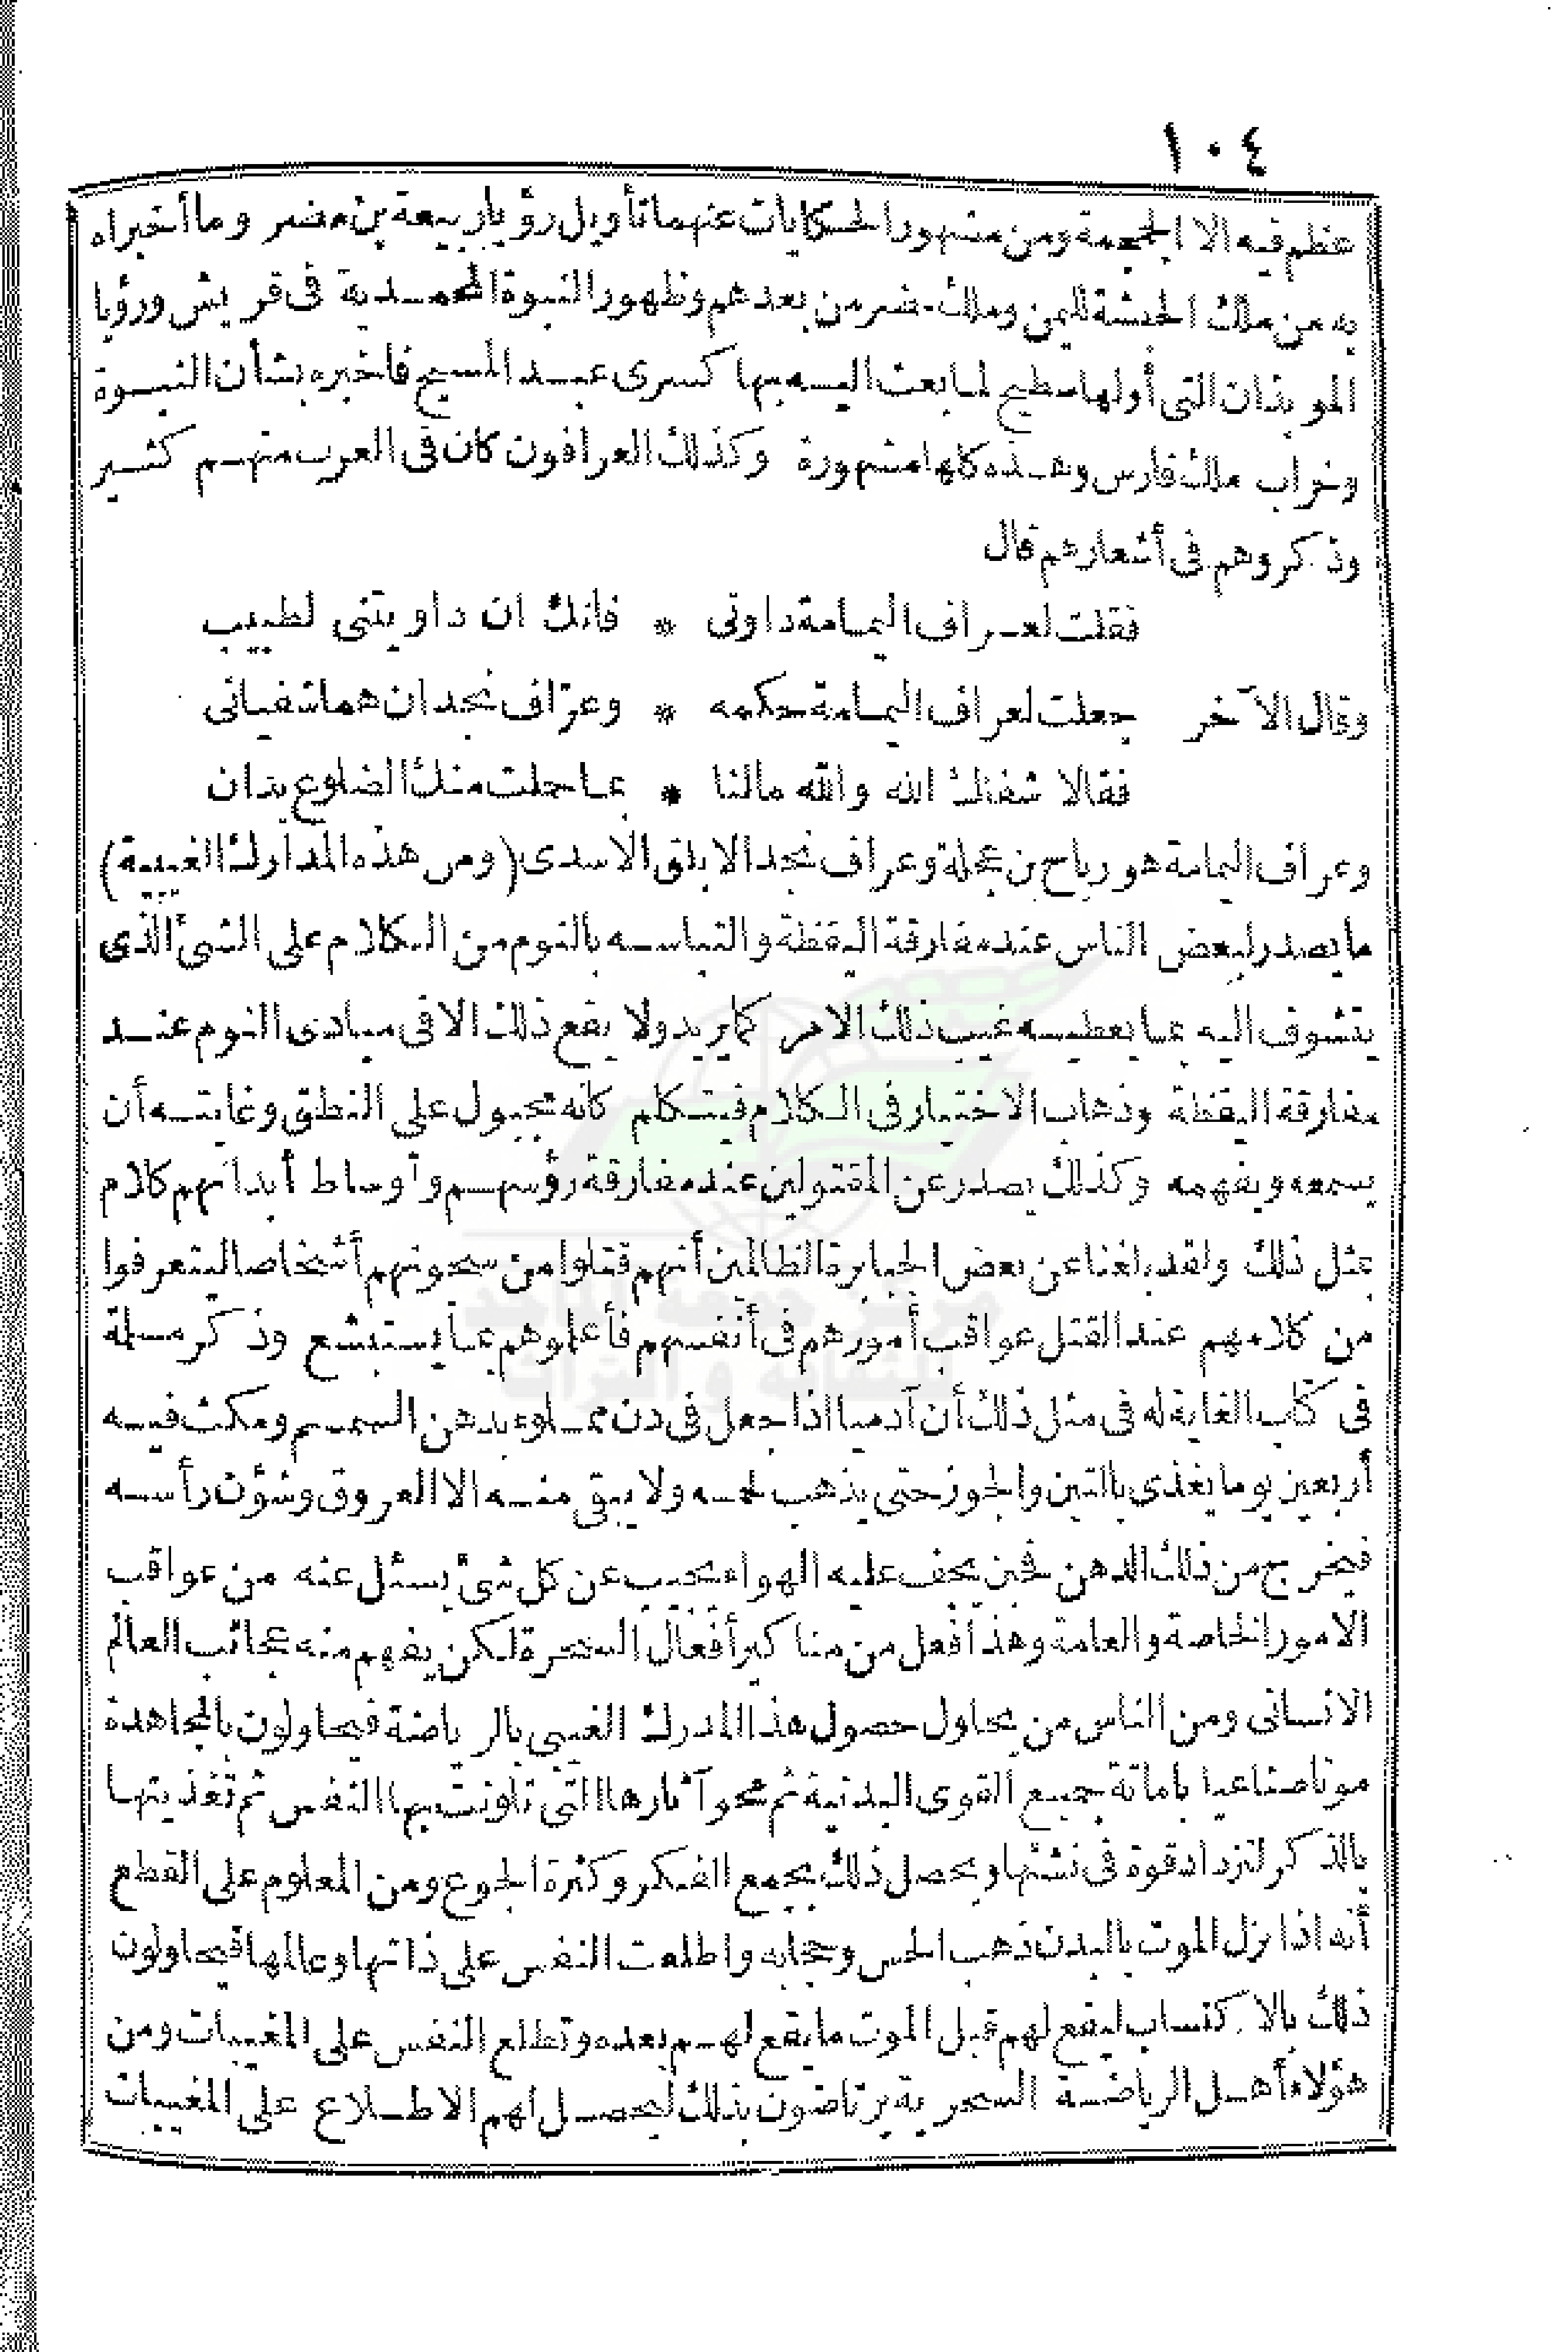 ١٠٤
عظم فيه الا الجمجمة ومن مشهور الحكايات عنهما تأويل رؤيا ربيعة بن مضر وما أخبراه
به من ملك الحبشة لليمن وملك مضر من بعدهم وظهور النبوة المحمدية فى قريش ورؤيا
الموبذان التى أولها سطيح لما بعث اليه بها كسرى عبد المسيح فاخبره بشأن النبوة
وخراب ملك فارس وهذه كلها مشهورة وكذلك العرافون كان فى العرب منهم كثير
وذكروهم فى أشعارهم قال
فقلت لعراف اليمامة داونى * فانك ان داويتنى لطبيب
وقال الآخر جعلت لعراف اليمامة حكمه * وعرّاف نجد ان هما شفيانى
فقالا شفاك الله والله مالنا * بما حملت منك الضلوع يدان
وعراف اليمامة هو رباح بن عجلة وعراف نجد الابلق الاسدى (ومن هذه المدارك الغيبية)
ما يصدر لبعض الناس عند مفارقة اليقظة والتباسه بالنوم من الكلام على الشئ الذى
يتشوف اليه بما يعطيه غيب ذلك الامر كما يريد ولا يقع ذلك الا فى مبادى النوم عند
مفارقة اليقظة وذهاب الاختيار فى الكلام فيتكلم كانه مجبول على النطق وغايته أن
يسمعه ويفهمه وكذلك يصدر عن المقتولين عند مفارقة رؤسهم وأوساط أبدانهم كلام
بمثل ذلك ولقد بلغنا عن بعض الجبابرة الظالمين أنهم قتلوا من سجونهم أشخاصا ليتعرفوا
من كلامهم عند القتل عواقب أمورهم فى أنفسهم فأعلموهم بما يستبشع وذكر مسلمة
فى كتاب الغاية له فى مثل ذلك أن آدميا اذا جعل فى دن مملوء بدهن السمسم ومكث فيه
أربعين يوما يغذى بالتين والجوز حتى يذهب لحمه ولا يبقى منه الا العروق وشؤن رأسه
فيخرج من ذلك الدهن فحين يجف عليه الهواء يجيب عن كل شئ يسئل عنه من عواقب
الامور الخاصة والعامة وهذا فعل من مناكير أفعال السحرة لكن يفهم منه عجائب العالم
الانسانى ومن الناس من يحاول حصول هذا المدرك الغيبى بالرياضة فيحاولون بالمجاهدة
موتا صناعيا باماتة جميع القوى البدنية ثم محو آثارها التى تلونت بها النفس ثم تغذيتها
بالذكر لتزداد قوة فى نشئها ويحصل ذلك بجمع الفكر وكثرة الجوع ومن المعلوم على القطع
أنه اذا نزل الموت بالبدن ذهب الحس وحجابه واطلعت النفس على ذاتها وعالمها فيحاولون
ذلك بالاكتساب ليقع لهم قبل الموت ما يقع لهم بعده وتطلع النفس على المغيبات ومن
هؤلاء أهل الرياضة السحرية يرتاضون بذلك ليحصل لهم الاطلاع على المغيبات
مركز جمعة الماجد
للثقافة و التراث